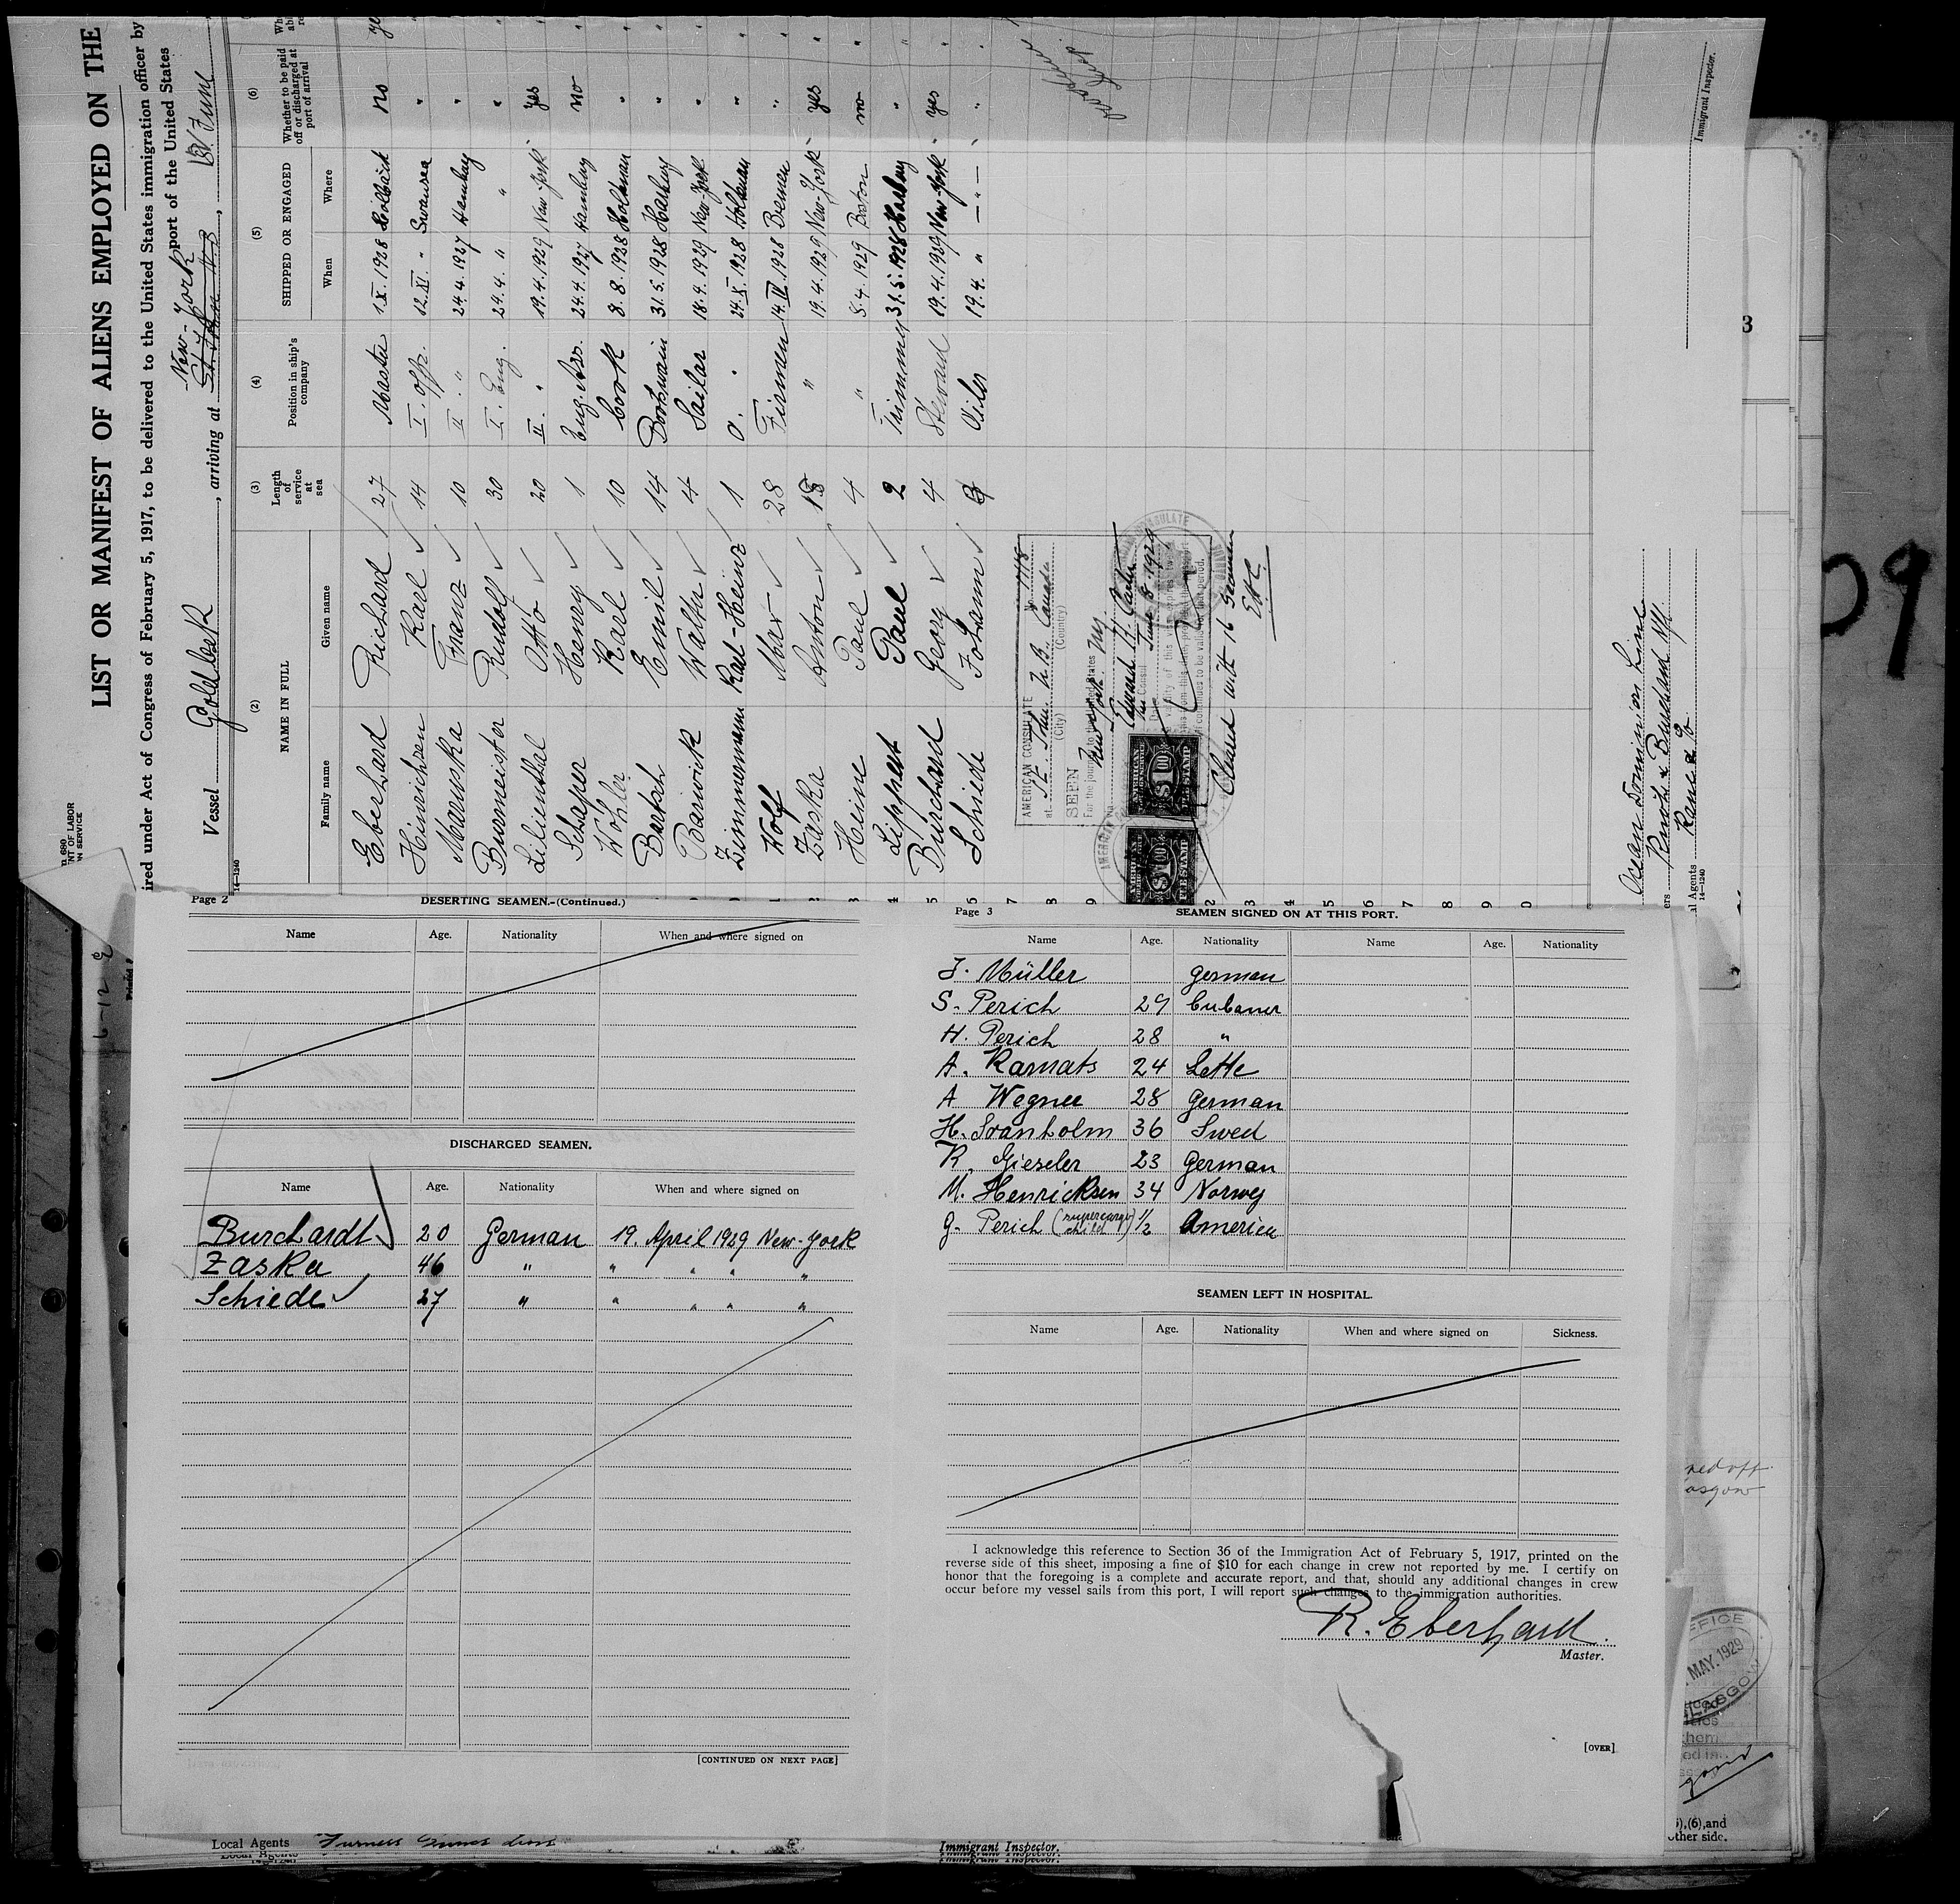 LIST OR MANIFEST OF ALIENS EMPLOYED ON THE
ired under Act of Congress of February 5, 1917, to be delivered to the United States immigration officer by
port of the United States
Vessel Goldbek, arriving at St. John N.B. New-York
14—1240
(2) NAME IN FULL
(3) Length of service at sea
(4) Position in ship's company
(5) SHIPPED OR ENGAGED
(6) Whether to be paid off or discharged at port of arrival
Family name Given name When Where
Eberhard Richard 27 Master 1.X.1928 no
Heinrichsen Karl 14 I. Offz. 12.XI. " Swansea "
Maruska Franz 10 II " 24.4.1927 Hamburg "
Burmeister Rudolf 30 I. Eng. 24.4. " " "
Lilienthal Otto 20 II. " 19.4.1929 New-York yes
Schaper Henry 1 Eng. Ass. 24.4.1927 Hamburg no
Wöhler Karl 10 Cook 8.8.1928 Holtenau "
Bartsch Emil 14 Botswain 31.5.1928 Harburg "
Barwick Walther 4 Sailor 18.4.1929 New-York "
Zimmermann Karl-Heinz 1 O. " 24.X.1928 Holtenau "
Wolf Max 28 Firemen 14.IV.1928 Bremen "
Zaska Anton 18 " 19.4.1929 New-York yes
Heine Paul 4 " 8.4.1929 Boston no
Lippert Paul 2 Trimmer 31.5.1928 Harburg "
Burchard Georg 4 Steward 19.4.1929 New-York yes
Schiede Johann Oiler 19.4. " — " — "
AMERICAN CONSULATE
at St. John, N.B. Canada
(City) (Country)
SEEN
For the journey to the United States
New York
June 8 1929
AMERICAN FEE STAMP $1.00
AMERICAN FEE STAMP $1.00
Cleared with 16 Seamen
Ocean Dominion Line
Immigrant Inspector.
14—1240
Page 2
DESERTING SEAMEN.-(Continued.)
Name Age. Nationality When and where signed on
DISCHARGED SEAMEN.
Name Age. Nationality When and where signed on
Burchardt 20 German 19. April 1929 New-York
Zaska 46 " " " " "
Schiede 27 " " " " "
[CONTINUED ON NEXT PAGE]
Page 3
SEAMEN SIGNED ON AT THIS PORT.
Name Age. Nationality Name Age. Nationality
J. Müller German
S. Perich 29 Cubaner
H. Perich 28 "
A. Ramats 24 Lette
A Wegner 28 German
H. Svanholm 36 Swed
R. Gieseler 23 German
M. Henricksen 34 Norweg
G. Perich (supercargo child) 1/2 America
SEAMEN LEFT IN HOSPITAL.
Name Age. Nationality When and where signed on Sickness.
I acknowledge this reference to Section 36 of the Immigration Act of February 5, 1917, printed on the
reverse side of this sheet, imposing a fine of $10 for each change in crew not reported by me. I certify on
honor that the foregoing is a complete and accurate report, and that, should any additional changes in crew
occur before my vessel sails from this port, I will report such changes to the immigration authorities.
R. Eberhard.
Master.
[OVER]
MAY. 1929
Local Agents Furness
Immigrant Inspector.
),(6),and
other side.